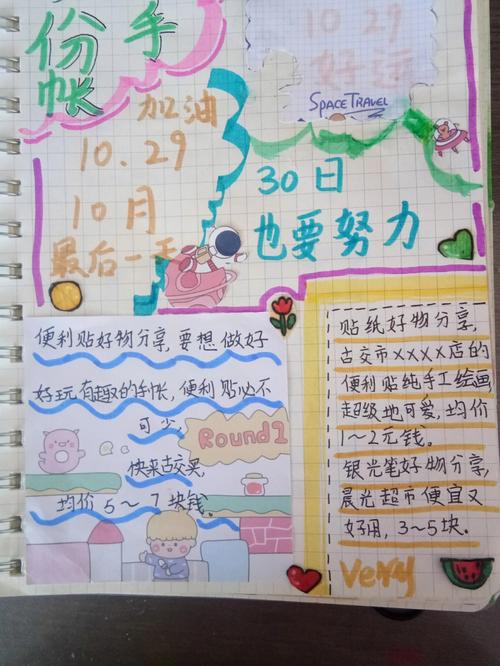 手
份
帐
10.29
好运
SPACE TRAVEL
加油
10.29
10月
最后一天
30日
也要努力
便利贴好物分享,要想做好
好玩有趣的手帐,便利贴必不
可少,
Round1
快来古交买,
均价5~7块钱。
贴纸好物分享,
古交市XXXX店的
便利贴纯手工绘画
超级地可爱,均价
1~2元钱。
银光笔好物分享,
晨光超市便宜又
好用,3~5块.
Very